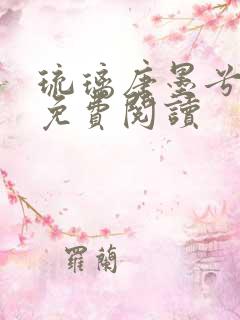 琉璃唐墨兮
免費閱讀
羅蘭